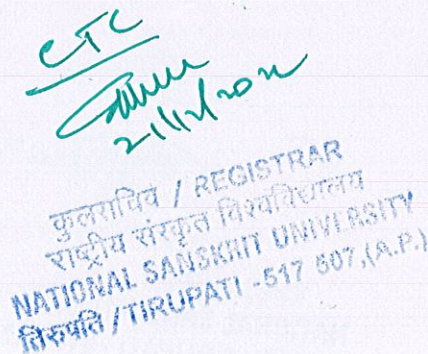 CTC
कुलसचिव / REGISTRAR
राष्ट्रीय संस्कृत विश्वविद्यालय
NATIONAL SANSKRIT UNIVERSITY
तिरुपति / TIRUPATI - 517 507, (A.P.)